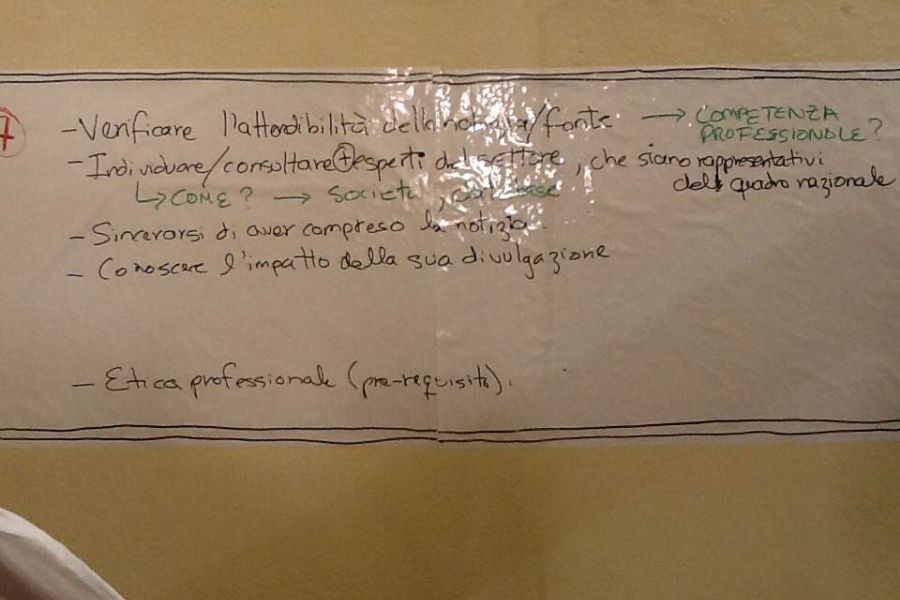 7
- Verificare l'attendibilità della notizia/fonte. → COMPETENZA
PROFESSIONALE?
- Individuare/consultare + esperti del settore, che siano rappresentativi
del quadro nazionale
↳ COME? → Società, database
- Sincerarsi di aver compreso la notizia.
- Conoscere l'impatto della sua divulgazione
- Etica professionale (pre-requisito).